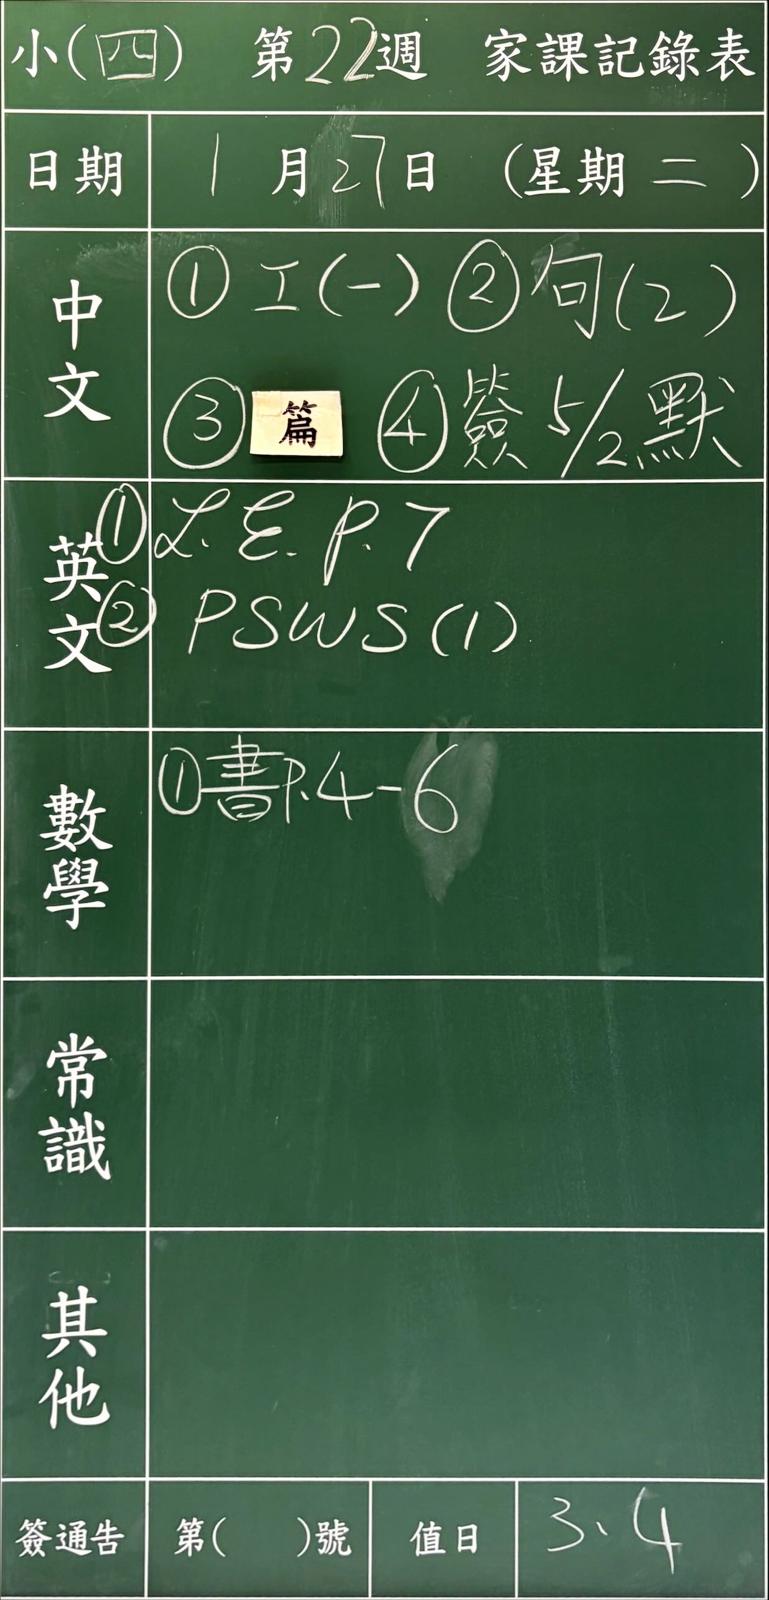 小(四) 第22週 家課記錄表
日期 1月27日 (星期二)
中文 ①工(一) ②句(2)
③篇 ④簽5/2默
英文 ①L.E. P.7
②PSWS(1)
數學 ①書P.4-6
常識
其他
簽通告 第( )號 值日 3、4